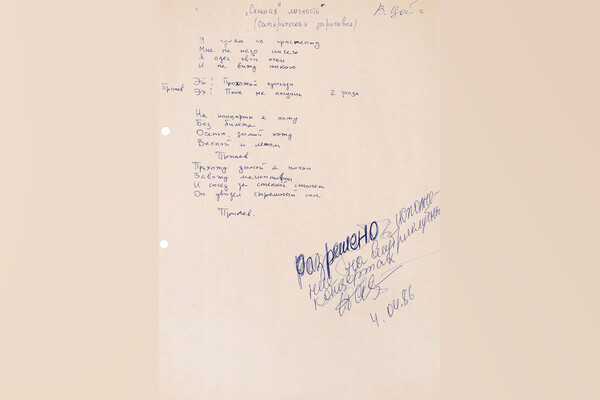 „Сильная" личность" В. Цой
(Сатирическая зарисовка)
Я гуляю по проспекту
Мне не надо ничего
Я одел свои очки
И не вижу никого
Припев Эй! Прохожий проходи
Эх! Пока не получил 2 раза
На концерты я хожу
Без билета
Осенью, зимой хожу
Весной и летом
Припев
Прихожу домой я ночью
Завожу магнитофон
И сосед за стенкой стонет
Он увидел страшный сон.
Припев.
разрешено к исполне-
нию на
концертах
4.04.86